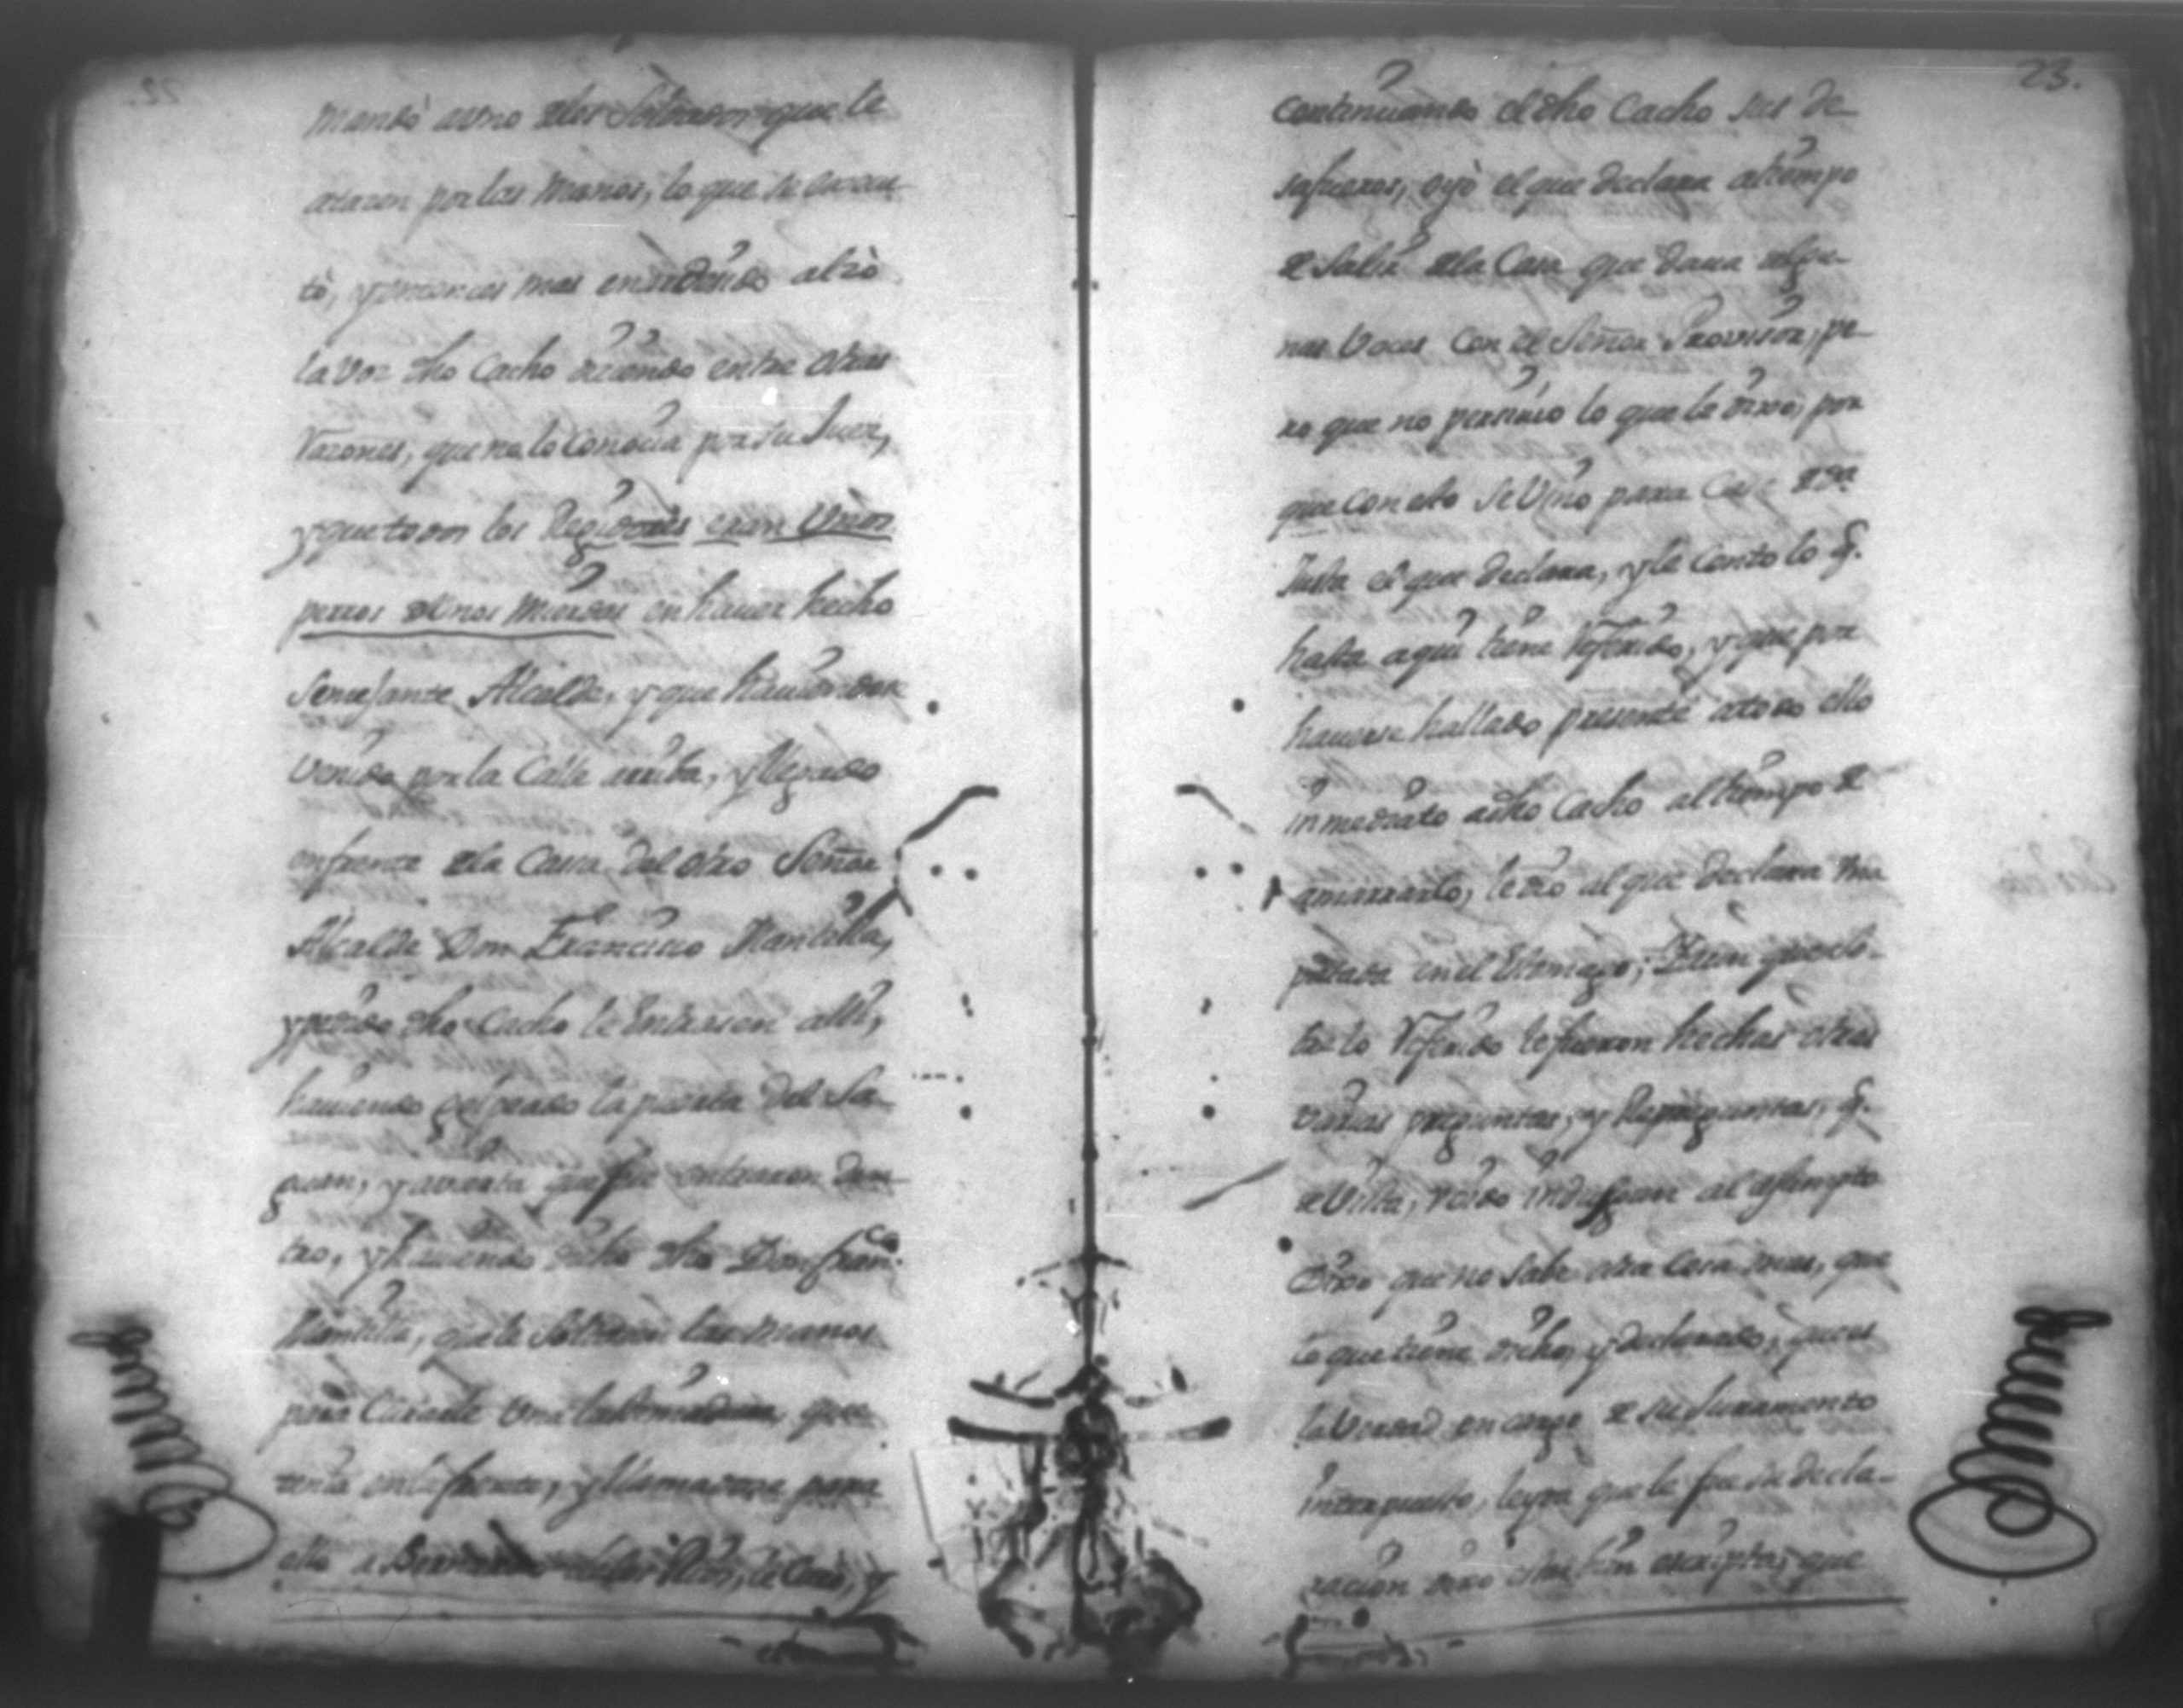 mandò auno delos Soldados que le
ataron por las manos, lo que se execu-
tò, y entonces mas encendido alzò
la voz dho Cacho diciendo entre otras
razones, que no lo conocia por su Juez,
y que todos los Regidores eran Unos
perros de Unos Mierdas en hauer hecho
Semejante Alcalde, y que hauiendose
Venido por la Calle arriba, y llegado
enfrente dela Casa del otro Señor
Alcalde Don Francisco Mantilla,
y pedido dho Cacho le entrasen allì,
hauiendo golpeado la puerta del Sa-
guan, y auierta que fue entraron den-
tro, y hauiendo dicho dho Don Fran.co
Mantilla, que le soltaran las manos
para Curarle Una lastimadura, que
tenia en la frente, y llamadose para
ello a delos Rios, le Curò, y
23.
Continuando el dho Cacho sus de-
safueros, oyò el que declara al tiempo
de Salir dela Casa que daua algu-
nas Voces con el Señor Provisor, pe-
ro que no percibio lo que le dixo, por
que con esto se Vino para Casa de Dn
el que declara, y le Conto lo q.
hasta aqui tiene Referido, y que por
hauerse hallado presente atodo ello
inmediato adho Cacho al tiempo de
amarrarlo, le dio al que declara Una
patada en el Estomago; Y aun que so-
bre lo Referido le fueron hechas otras
varias preguntas, y Repreguntas, q.
al asumpto
Dixo que no Sabe otra Cosa mas, que
lo que tiene dicho, y declarado, que es
la Verdad en cargo de su Juramento
interpuesto, leyda que le fue su decla-
racion dixo estar bien escripta, que